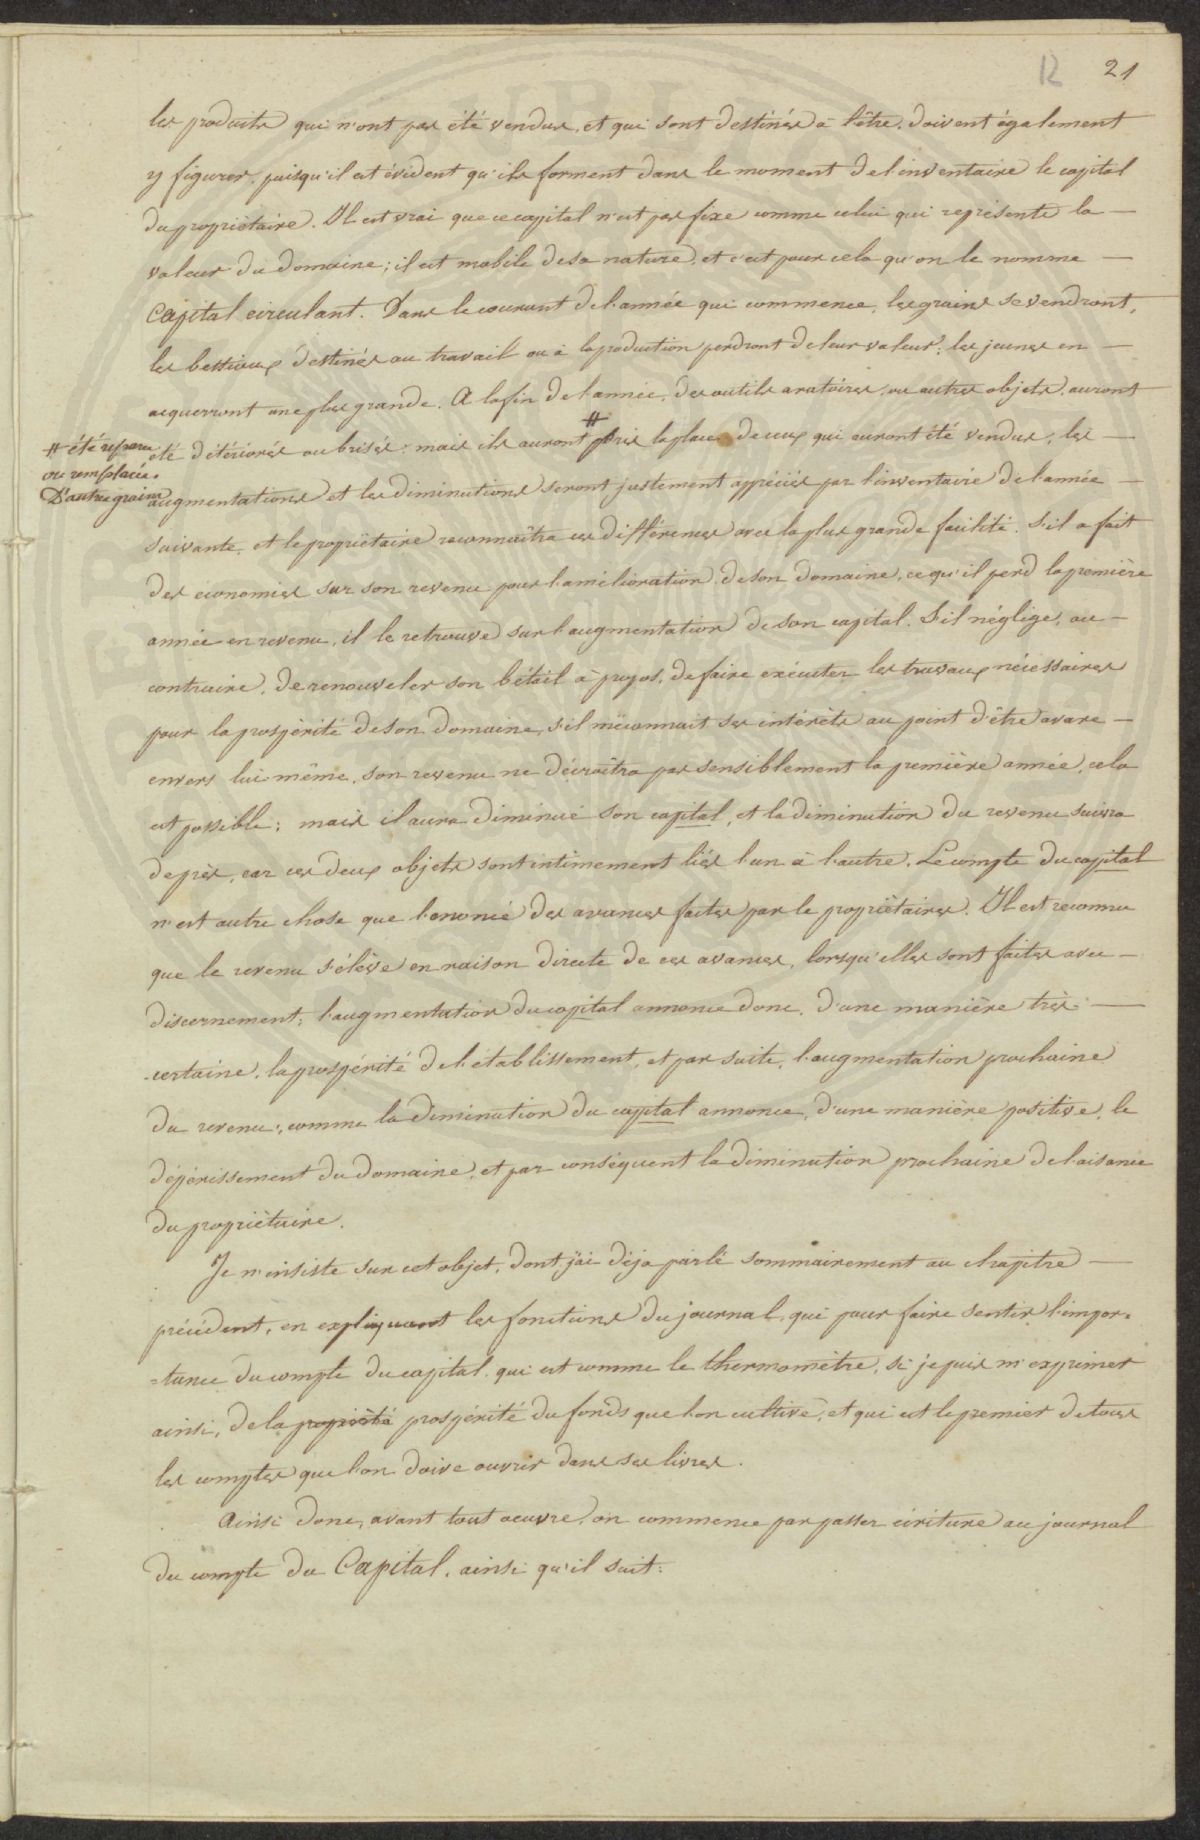 12 21
les produits qui n'ont pas été vendus, et qui sont destinés à l'être, doivent également
y figurer, puisqu'il est évident qu'ils forment dans le moment de l'inventaire le capital
du propriétaire. Il est vrai que ce capital n'est pas fixe comme celui qui représente la —
valeur du domaine; il est mobile de sa nature, et c'est pour cela qu'on le nomme —
Capital circulant. Dans le courant de l'année qui commence, les grains se vendront,
les bestiaux destinés au travail ou à la production perdront de leur valeur; les jeunes en —
acquerront une plus grande. A la fin de l'année, des outils aratoires, ou autres objets, auront
été détériorés ou brisés; mais ils auront # pris la place de ceux qui auront été vendus, les —
# été réparés
ou remplacés.
D'autres grains
augmentations et les diminutions seront justement appréciés par l'inventaire de l'année —
suivante, et le propriétaire reconnaîtra ces différences avec la plus grande facilité. S'il a fait
des économies sur son revenu pour l'amélioration de son domaine, ce qu'il perd la première
année en revenu, il le retrouve sur l'augmentation de son capital. S'il néglige, au —
contraire, de renouveler son bétail à propos, de faire exécuter les travaux nécessaires
pour la prospérité de son domaine, s'il méconnait ses intérêts au point d'être avare —
envers lui-même, son revenu ne décroîtra pas sensiblement la première année, cela
est possible; mais il aura diminué son capital, et la diminution du revenu suivra
de près, car ces deux objets sont intimement liés l'un à l'autre. Le compte du capital
n'est autre chose que l'énoncé des avances faites par le propriétaires. Il est reconnu
que le revenu s'élève en raison directe de ces avances, lorsqu'elles sont faites avec —
discernement; l'augmentation du capital annonce donc, d'une manière très —
certaine, la prospérité de l'établissement, et par suite, l'augmentation prochaine
du revenu; comme la diminution du capital annonce, d'une manière positive, le
dépérissement du domaine, et par conséquent la diminution prochaine de l'aisance
du propriétaire.
Je n'insiste sur cet objet, dont j'ai déja parlé sommairement au chapitre —
précédent, en expliquant les fonctions du journal, qui pour faire sentir l'impor=
=tance du compte du capital, qui est comme le thermomètre, si je puis m'exprimer
ainsi, de la propriété prospérité du fonds que l'on cultive, et qui est le premier de tous
les comptes que l'on doive ouvrir dans ses livres.
Ainsi donc, avant tout oeuvre, on commence par passer écriture au journal
du compte du Capital, ainsi qu'il suit: